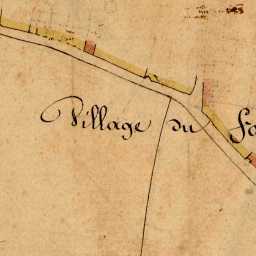 Village du